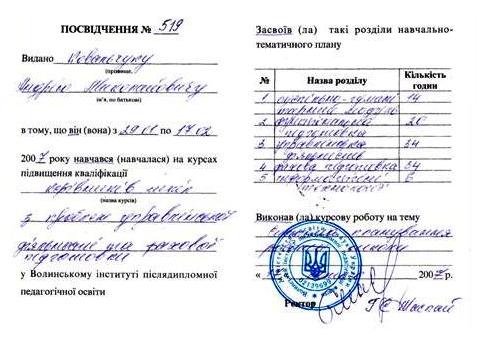 ПОСВІДЧЕННЯ № 519
Видано Ковальчуку
(прізвище,
Андрію Миколайовичу
ім'я, по батькові)
в тому, що він (вона) з 29.01 по 17.02
2007 року навчався (навчалася) на курсах
підвищення кваліфікації
керівників шкіл
(назва курсів)
з проблем управлінської
діяльності для фахової
підготовки
у Волинському інституті післядипломної
педагогічної освіти
Засвоїв (ла) такі розділи навчально-
тематичного плану
№ Назва розділу Кількість годин
1 суспільно-гумані 14
тарний модуль
2 підготовка 20
3 управлінська 34
діяльність
4 фахова підготовка 34
5 інформаційні 6
технології
Виконав (ла) курсову роботу на тему
планування
роботи школи
« 2007 р.
02139699
Ректор